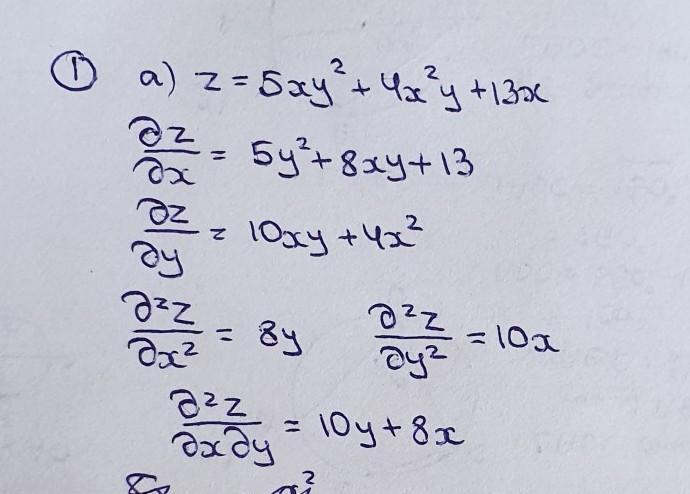 ① a) z = 5xy² + 4x²y + 13x
∂z/∂x = 5y² + 8xy + 13
∂z/∂y = 10xy + 4x²
∂²z/∂x² = 8y ∂²z/∂y² = 10x
∂²z/∂x∂y = 10y + 8x